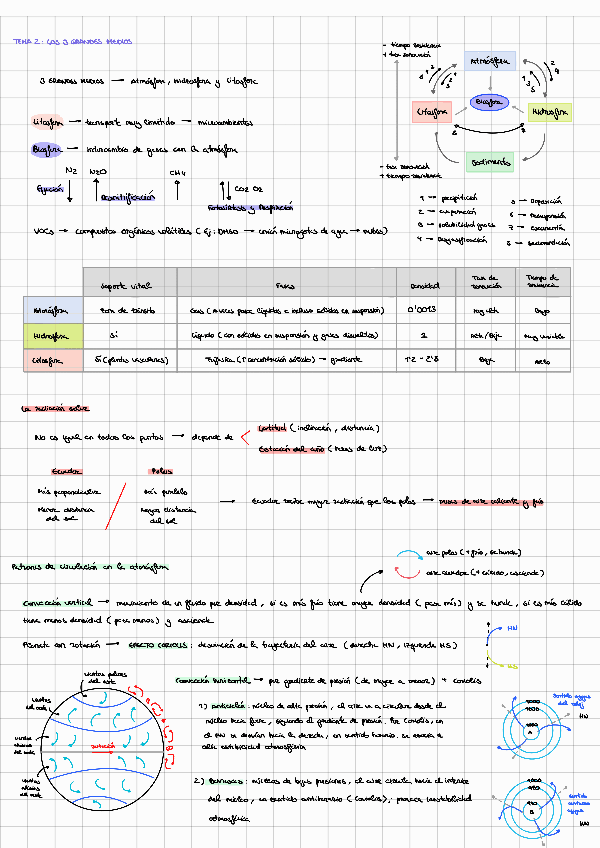 TEMA 2: LOS 3 GRANDES MEDIOS
3 GRANDES MEDIOS → Atmósfera, hidrosfera y litosfera
Litosfera → transporte muy limitado → microambientes
Biosfera → intercambio de gases con la atmósfera
N2 N2O CH4 CO2 O2
Fijación
Desnitrificación
Fotosíntesis y Respiración
VOCs → compuestos orgánicos volátiles (Ej: DMSO → unión microgotas de agua → nubes)
- tiempo residencia
+ tasa renovación
Atmósfera
Litosfera
Biosfera
Hidrosfera
Sedimento
- tasa renovación
+ tiempo residencia
1 → precipitación
2 → evaporación
3 → solubilidad gases
4 → Desgasificación
5 → Deposición
6 → Resuspensión
7 → escorrentía
8 → sedimentación
Soporte vital
Fases
Densidad
Tasa de renovación
Tiempo de residencia
Atmósfera
Zona de tránsito
Gas (A veces pasa líquidos e incluso sólidos en suspensión)
0'0013
Muy alta
Bajo
Hidrosfera
Sí
Líquido (con sólidos en suspensión y gases disueltos)
1
Alta/Baja
Muy variable
Litosfera
Sí (plantas vasculares)
Trifásica (↑ concentración sólido) → gradiente
1'2 - 2'8
Baja
Alto
La radiación solar
No es igual en todos los puntos → depende de
Latitud (inclinación, distancia)
Estación del año (horas de luz)
Ecuador
Polos
Más perpendicular
Más paralelo
Menor distancia del sol
Mayor distancia del sol
→ Ecuador recibe mayor radiación que los polos → masas de aire caliente y frío
Patrones de circulación en la atmósfera
aire polos (+ frío, se hunde)
aire ecuador (+ cálido, asciende)
Convección vertical → movimiento de un fluido por densidad, si es más frío tiene mayor densidad (pesa más) y se hunde, si es más cálido
tiene menos densidad (pesa menos) y asciende
Planeta con rotación → EFECTO CORIOLIS: desviación de la trayectoria del aire (derecha HN, izquierda HS)
HN
HS
Convección horizontal → por gradiente de presión (de mayor a menor) + coriolis
vientos polares del este
vientos del oeste
vientos alisios del este
vientos alisios del este
rotación
1) Anticiclón: núcleo de alta presión, el aire va a circular desde el
núcleo hacia fuera, siguiendo el gradiente de presión. Por Coriolis, en
el HN se desvían hacia la derecha, en sentido horario. Se asocia a
alta estabilidad atmosférica
2) Borrascas: núcleos de bajas presiones, el aire circula hacia el interior
del núcleo, en sentido antihorario (Coriolis), provoca inestabilidad
atmosférica
sentido agujas del reloj
HN
A
sentido contrario agujas
HN
B